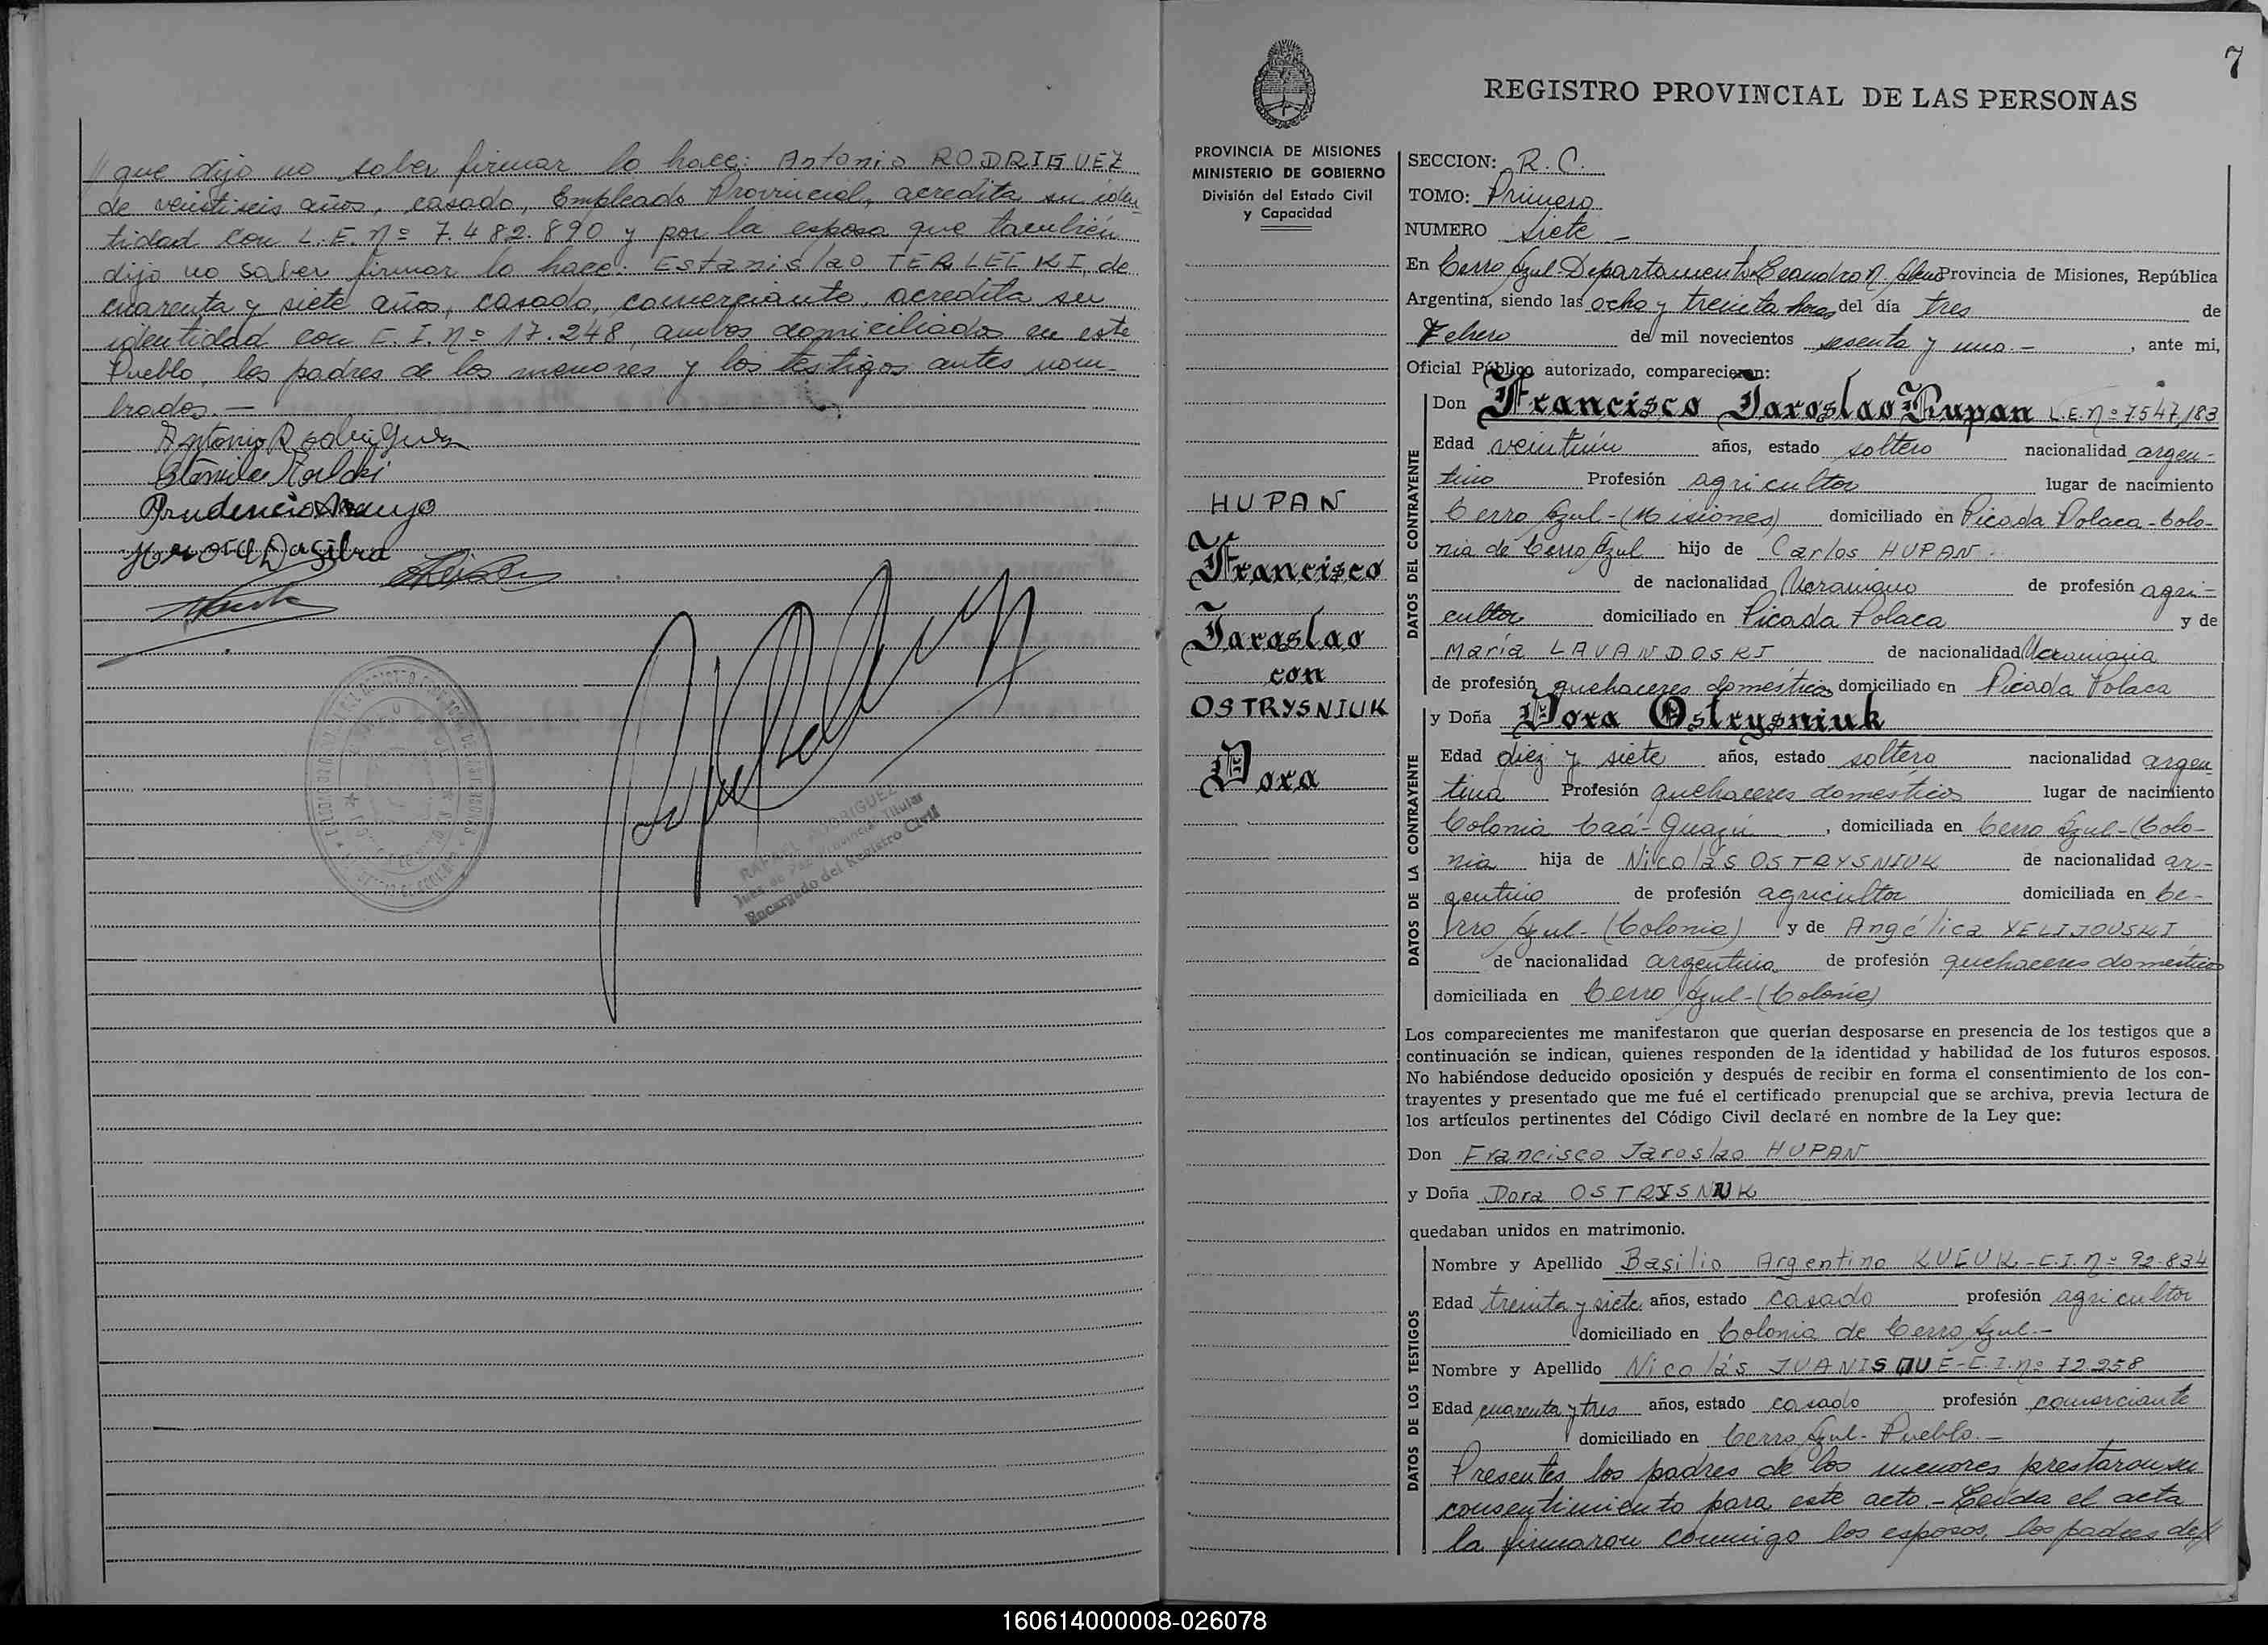 // que dijo no saber firmar lo hace: Antonio RODRIGUEZ
de veintiseis años, casado, Empleado Provincial, acredita su iden-
tidad con L.E. Nº 7.482.890 y por la esposa que también
dijo no saber firmar lo hace: Estanislao TERLECKI, de
cuarenta y siete años, casado, comerciante, acredita su
identidad con C.I. nº 17.248, ambos domiciliados en este
Pueblo, los padres de los menores y los testigos antes nom-
brados.—
Antonio Rodriguez
Prudencio Araujo
Dasilva
RAFAEL RODRIGUEZ
Juez de Paz Provincial Titular
Encargado del Registro Civil
7
REGISTRO PROVINCIAL DE LAS PERSONAS
PROVINCIA DE MISIONES
MINISTERIO DE GOBIERNO
División del Estado Civil
y Capacidad
HUPAN
Francisco
Jaroslao
con
OSTRYSNIUK
Dora
SECCION: R. C.
TOMO: Primero
NUMERO Siete –
En Cerro Azul Departamento Leandro N. Alem Provincia de Misiones, República
Argentina, siendo las ocho y treinta horas del día tres de
Febrero de mil novecientos sesenta y uno.– , ante mi,
Oficial Público autorizado, comparecieron:
DATOS DEL CONTRAYENTE
Don Francisco Jaroslao Hupan L.E. Nº 7547,183
Edad veintiún años, estado soltero nacionalidad argen-
tino Profesión agricultor lugar de nacimiento
Cerro Azul-(Misiones) domiciliado en Picada Polaca-Colo-
nia de Cerro Azul hijo de Carlos HUPAN
de nacionalidad Ucraniano de profesión agri-
cultor domiciliado en Picada Polaca y de
María LAVANDOSKI de nacionalidad Ucraniana
de profesión quehaceres domésticos domiciliado en Picada Polaca
DATOS DE LA CONTRAYENTE
y Doña Dora Ostrysniuk
Edad diez y siete años, estado soltero nacionalidad argen
tina Profesión quehaceres domésticos lugar de nacimiento
Colonia Caá-Guazú , domiciliada en Cerro Azul-(Colo-
nia hija de Nicolás OSTRYSNIUK de nacionalidad ar-
gentino de profesión agricultor domiciliada en Ce-
rro Azul-(Colonia) y de Angélica YELIJOUSKI
de nacionalidad argentina de profesión quehaceres domésticos
domiciliada en Cerro Azul-(Colonia)
Los comparecientes me manifestaron que querían desposarse en presencia de los testigos que a
continuación se indican, quienes responden de la identidad y habilidad de los futuros esposos.
No habiéndose deducido oposición y después de recibir en forma el consentimiento de los con-
trayentes y presentado que me fué el certificado prenupcial que se archiva, previa lectura de
los artículos pertinentes del Código Civil declaré en nombre de la Ley que:
Don Francisco Jaroslao HUPAN
y Doña Dora OSTRYSNIUK
quedaban unidos en matrimonio.
DATOS DE LOS TESTIGOS
Nombre y Apellido Basilio Argentino KUCUK-C.I. Nº 92.834
Edad treinta y siete años, estado casado profesión agricultor
domiciliado en Colonia de Cerro Azul.–
Nombre y Apellido Nicolás JUANISQUE-C.I. nº 72.258
Edad cuarenta y tres años, estado casado profesión comerciante
domiciliado en Cerro Azul-Pueblo.–
Presentes los padres de los menores prestaron su
consentimiento para este acto.–Leída el acta
la firmaron conmigo los esposos, los padres de//
160614000008-026078